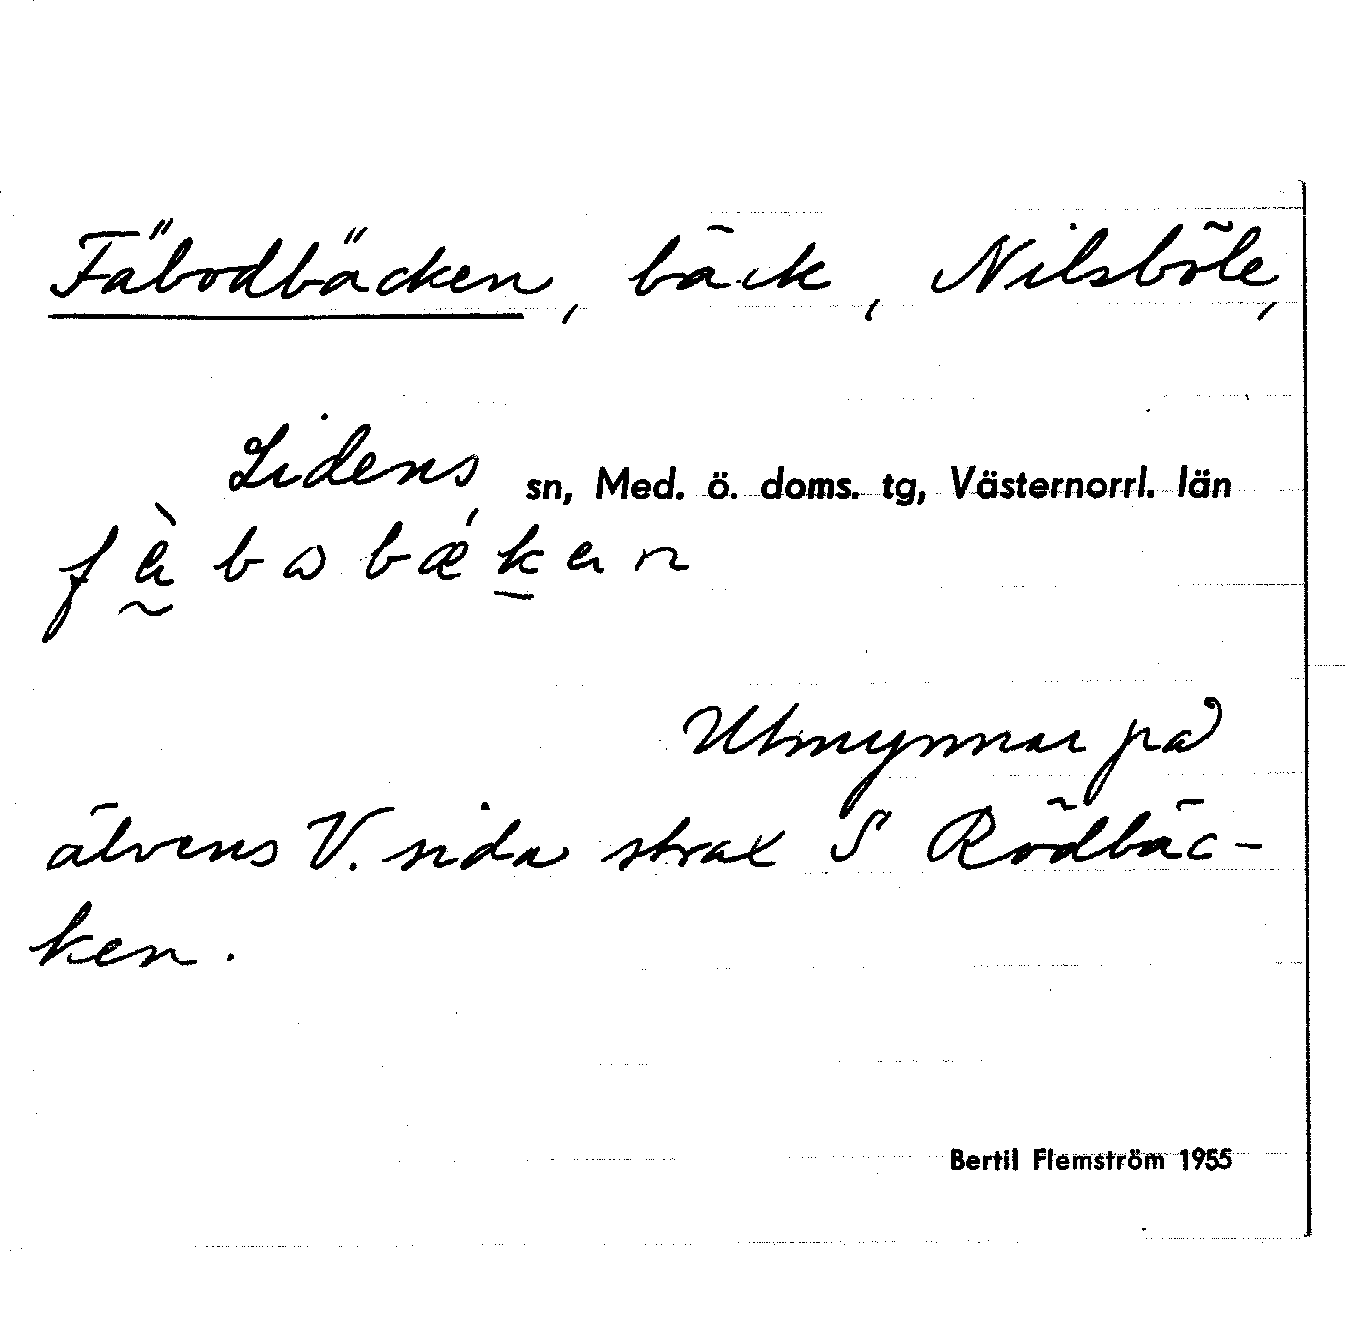 Fäbodbäcken, bäck, Nilsböle,
Lidens sn, Med. ö. doms. tg, Västernorrl. län
Utmynnar på
älvens V. sida strax S Rödbäc-
ken.
Bertil Flemström 1955